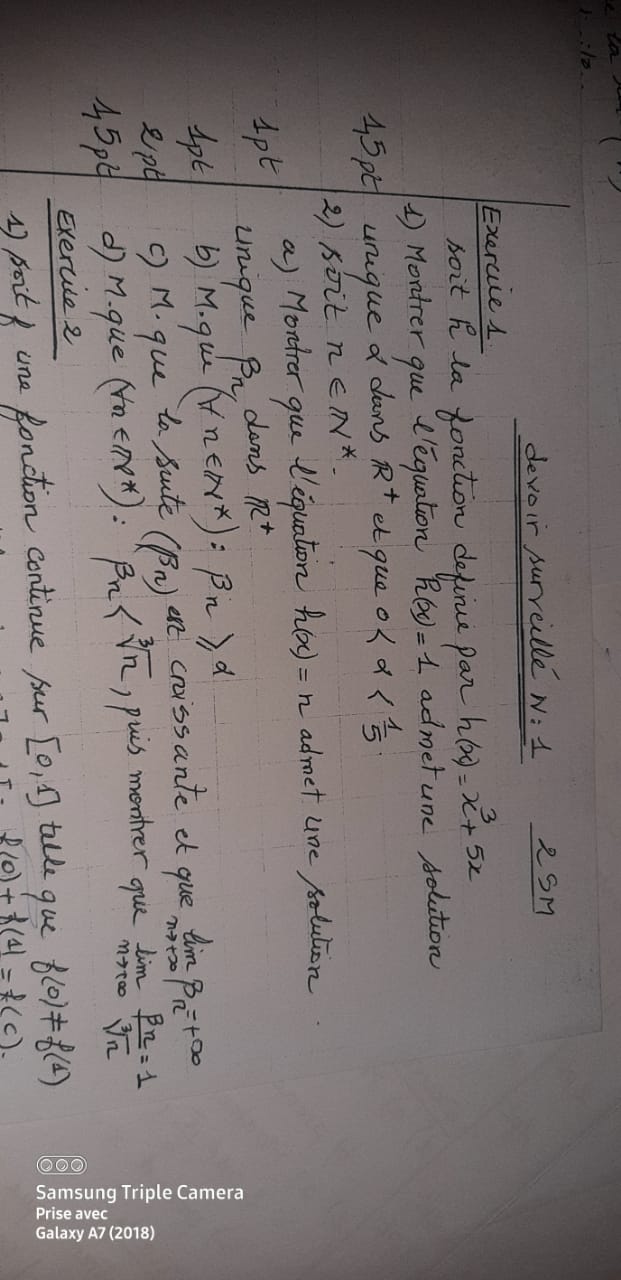 devoir surveillé N:1 2 SM
Exercice 1.
soit h la fonction definie par h(x) = x³ + 5x
1) Montrer que l'équation h(x) = 1 admet une solution
1,5pt unique α dans ℝ⁺ et que 0 < α < 1/5.
2) soit n ∈ ℕ*.
a) Montrer que l'équation h(x) = n admet une solution.
1pt unique βn dans ℝ⁺
1pt b) M.que (∀n∈ℕ*): βn ≥ α
2pt c) M.que la suite (βn) est croissante et que lim βn = +∞ n→+∞
1,5pt d) M.que (∀n∈ℕ*): βn < ∛n, puis montrer que lim βn/∛n = 1 n→+∞
Exercice 2
1) soit f une fonction continue sur [0,1] telle que f(0) ≠ f(1)
f(0) + f(1) = f(c).
Samsung Triple Camera
Prise avec
Galaxy A7 (2018)